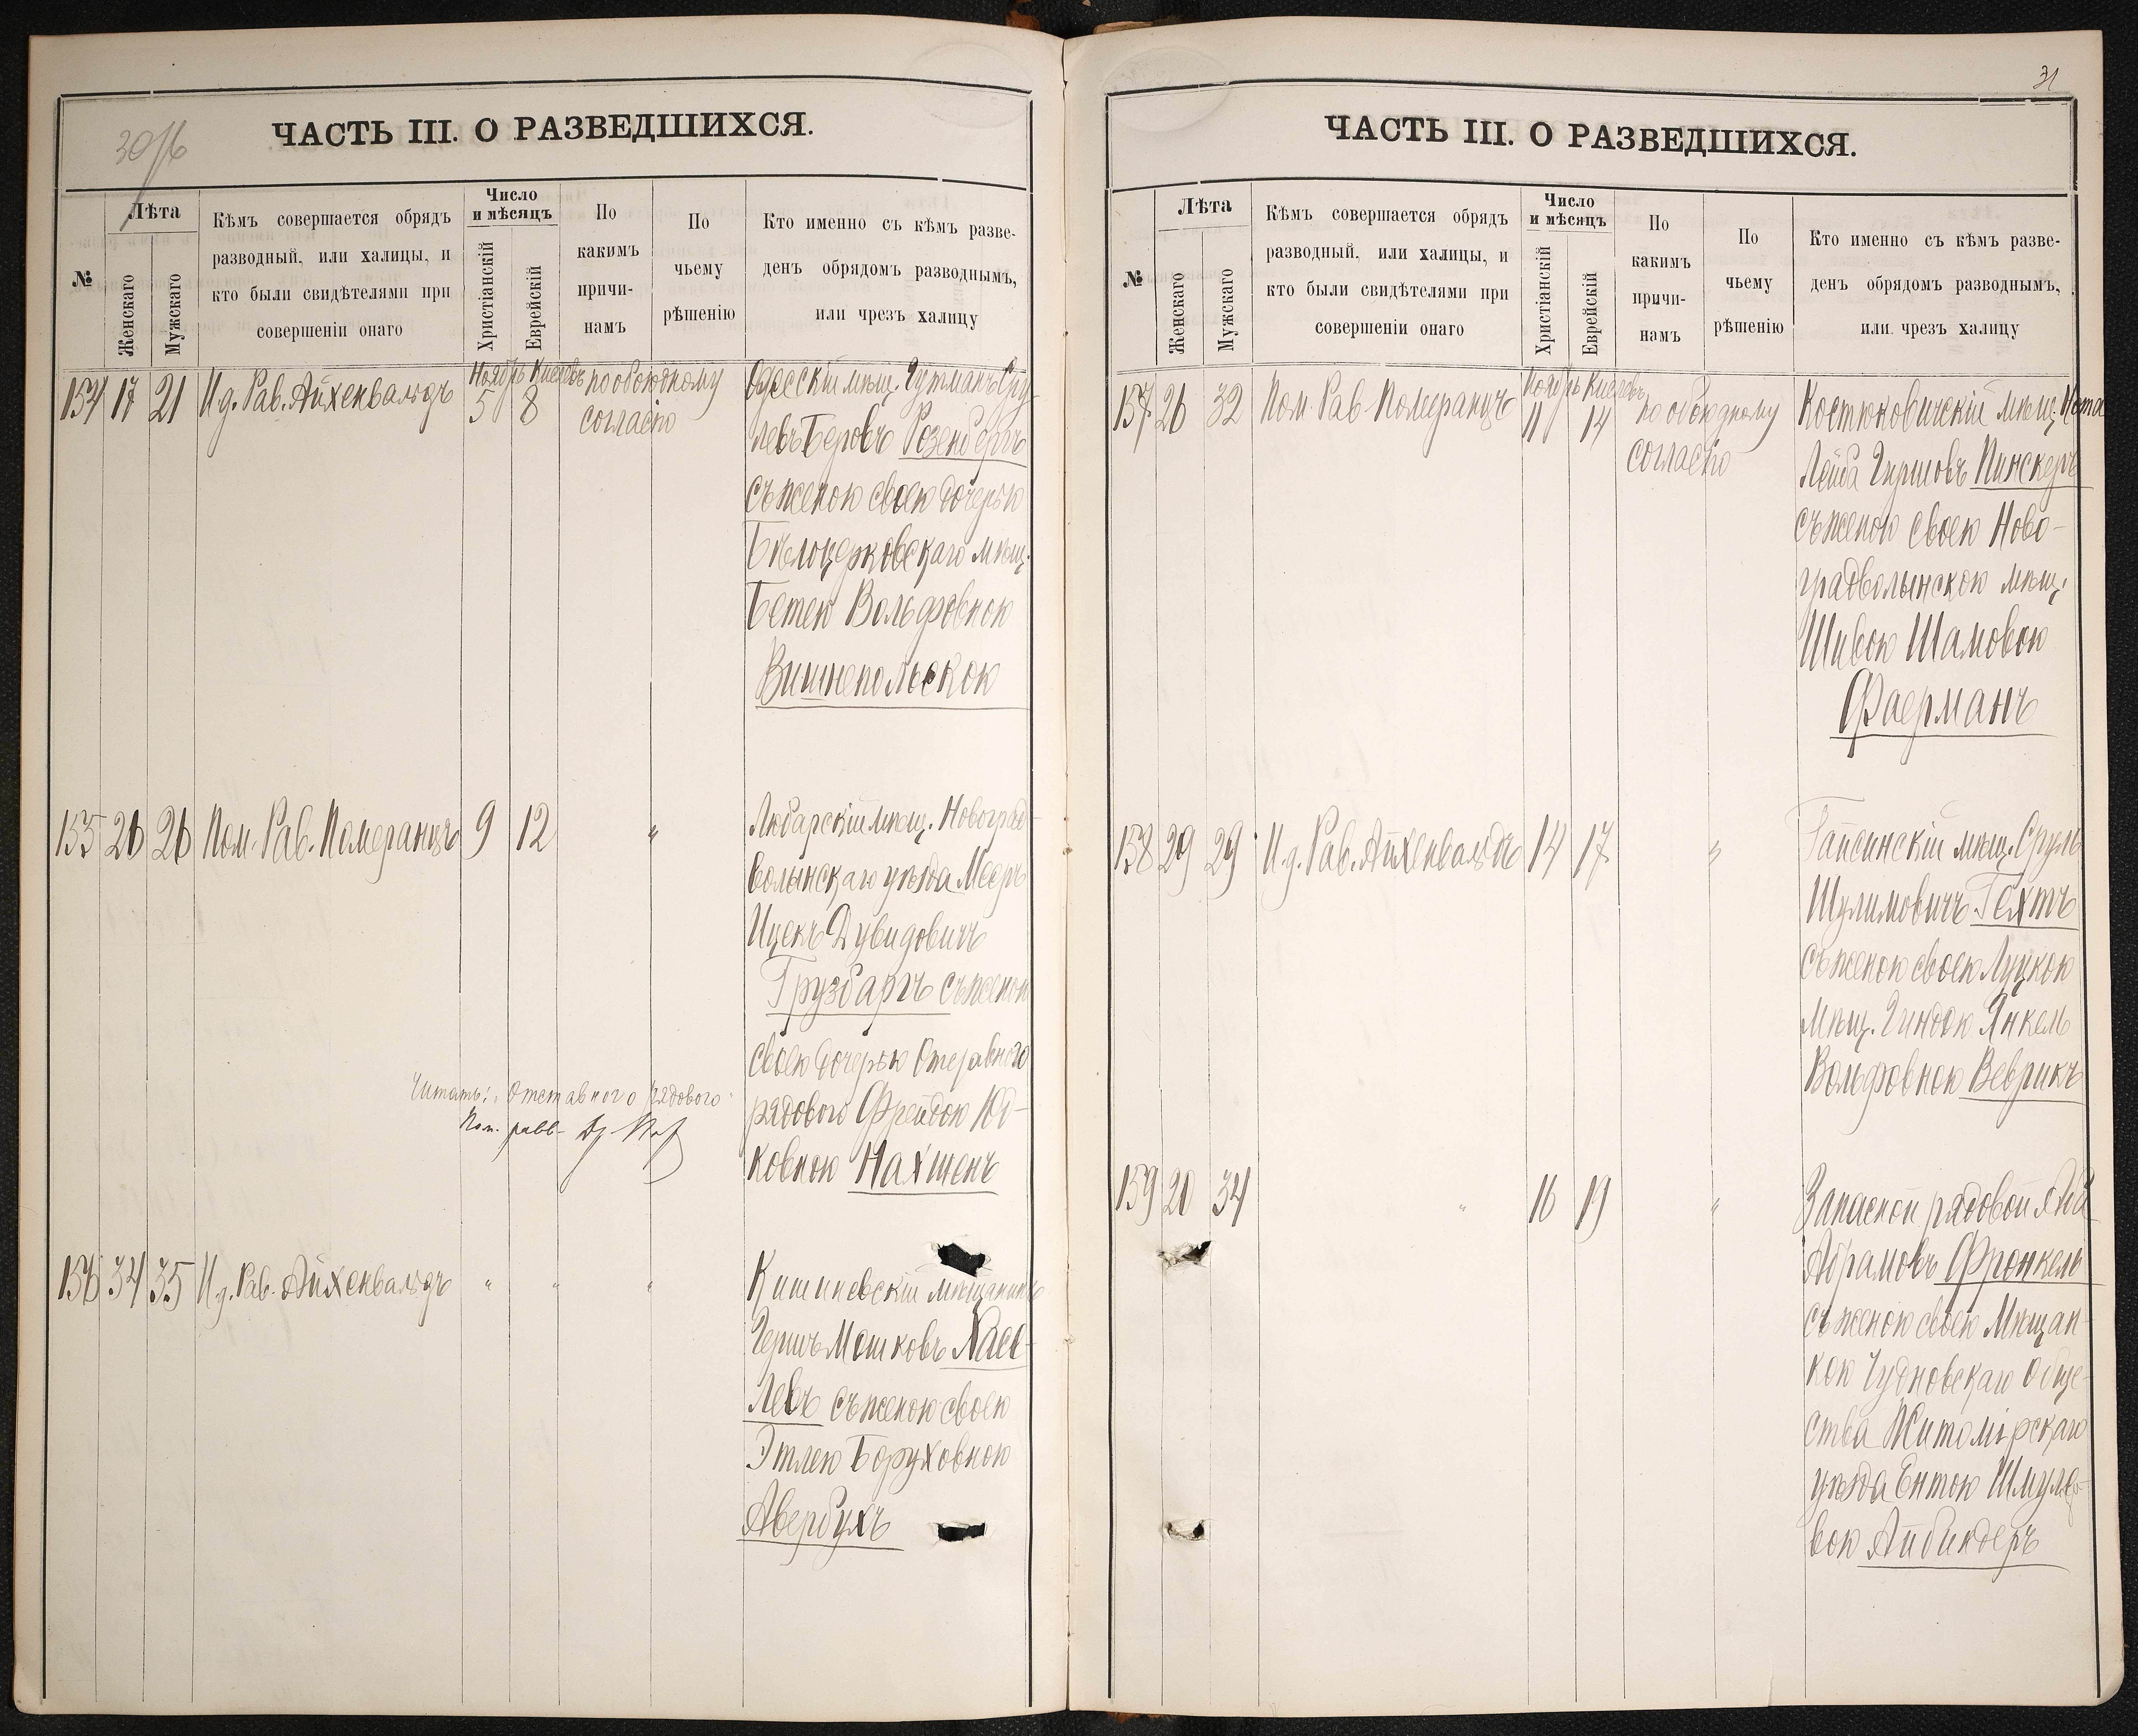 30/б
ЧАСТЬ III. О РАЗВЕДШИХСЯ.
№
Лѣта
Женскаго
Мужскаго
Кѣмъ совершается обрядъ
разводный, или халицы, и
кто были свидѣтелями при
совершеніи онаго
Число
и мѣсяцъ
Христіанскій
Еврейскій
По
какимъ
причи-
намъ
По
чьему
рѣшенію
Кто именно съ кѣмъ разве-
денъ обрядомъ разводнымъ,
или чрезъ халицу
154 17 21 И.д. Рав. Айхенвальдъ
Ноябрь Кислевъ
5 8
по обоюдному
согласію
Одесскій мѣщ. Гутманъ Сру-
левъ Беровъ Розенбергъ
съ женою своею дочерью
Бѣлоцерковскаго мѣщ.
Бетею Вольфовною
Вишнепольскою
155 26 26 Пом. Рав. Померанцъ 9 12 "
Любарскій мѣщ. Новоград-
волынскаго уѣзда Мееръ
Ицекъ Дувидовичъ
Грузбаргъ съ женою
своею дочерью Отставного
рядового Фрейдою Юд-
ковною Нахшенъ
Читать: "Отставного рядового"
Пом. равв.
156 34 35 И.д. Рав. Айхенвальдъ " " "
Кишиневскій мѣщанинъ
Гершъ Мошковъ Хаев-
левъ съ женою своею
Этлею Боруховною
Авербухъ
31
ЧАСТЬ III. О РАЗВЕДШИХСЯ.
№
Лѣта
Женскаго
Мужскаго
Кѣмъ совершается обрядъ
разводный, или халицы, и
кто были свидѣтелями при
совершеніи онаго
Число
и мѣсяцъ
Христіанскій
Еврейскій
По
какимъ
причи-
намъ
По
чьему
рѣшенію
Кто именно съ кѣмъ разве-
денъ обрядомъ разводнымъ,
или чрезъ халицу
157 26 32 Пом. Рав. Померанцъ
Ноябрь Кислевъ
11 14
по обоюдному
согласію
Костюковичскій мѣщ. Нота
Лейба Гиршовъ Пинскеръ
съ женою своею Ново-
градволынскою мѣщ.
Шивою Шамовою
Фаерманъ
158 29 29 И.д. Рав. Айхенвальдъ 14 17 "
Гайсинскій мѣщ. Сруль
Шулимовичъ Гехтъ
съ женою своею Луцкою
мѣщ. Гиндою Янкель
Вольфовною Веврикъ
159 20 34 " 16 19 "
Запасной рядовой
Абрамовъ Фронкель
съ женою своею Мѣщан-
кою Чудновскаго Обще-
ства Житомірскаго
уѣзда Ентою Шмуле-
вою Айбиндеръ